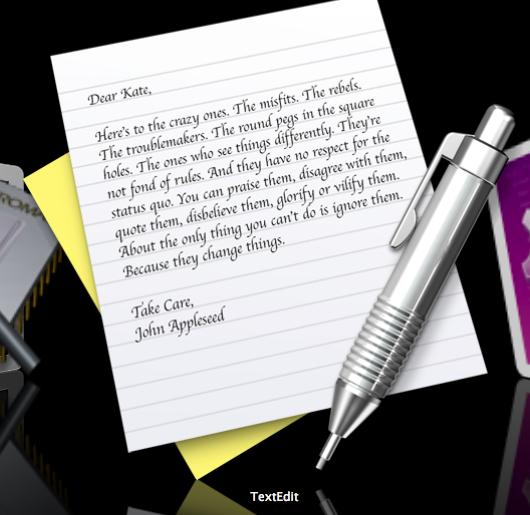 Dear Kate,
Here's to the crazy ones. The misfits. The rebels.
The troublemakers. The round pegs in the square
holes. The ones who see things differently. They're
not fond of rules. And they have no respect for the
status quo. You can praise them, disagree with them,
quote them, disbelieve them, glorify or vilify them.
About the only thing you can't do is ignore them.
Because they change things.
Take Care,
John Appleseed
TextEdit